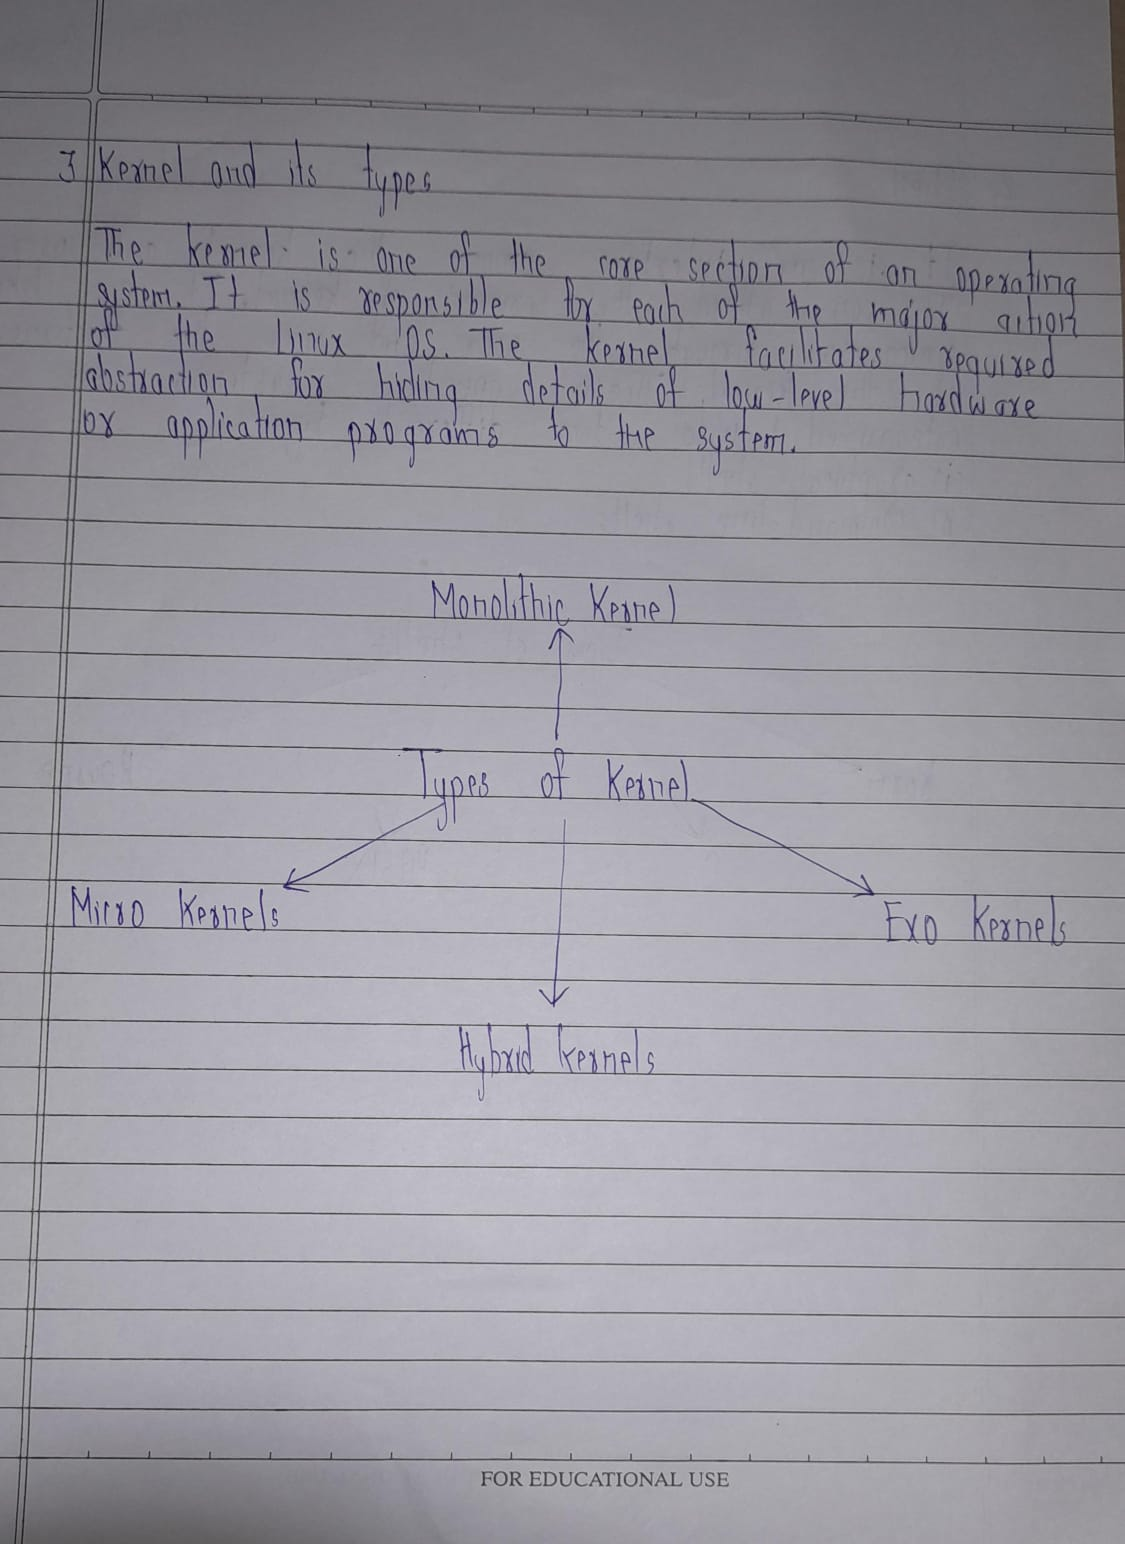 3 Kernel and its types
The kernel is one of the core section of an operating
system. It is responsible for each of the major action
of the Linux OS. The kernel facilitates required
abstraction for hiding details of low-level hardware
or application programs to the system.
Monolithic Kernel
Types of Kernel
Micro Kernels
Exo Kernels
Hybrid kernels
FOR EDUCATIONAL USE